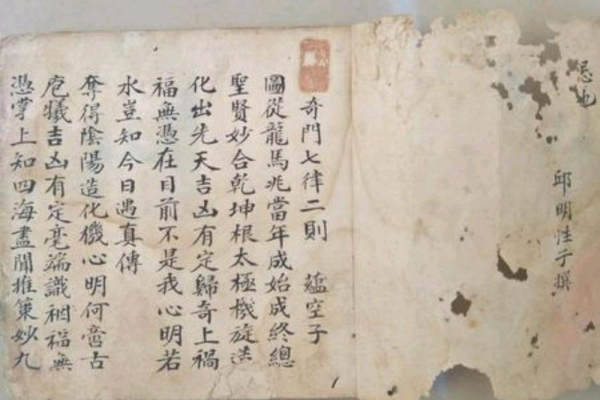 邱明性子撰
奇門七律二則 蘊空子
圖從龍馬兆當年成始成終總
聖賢妙合乾坤根太極機旋造
化出先天吉凶有定歸奇上禍
福無憑在目前不是我心明若
水豈知今日遇真傳
奪得陰陽造化機心明何啻古
庖犧吉凶有定毫端識禍福無
憑掌上知四海盡聞推策妙九